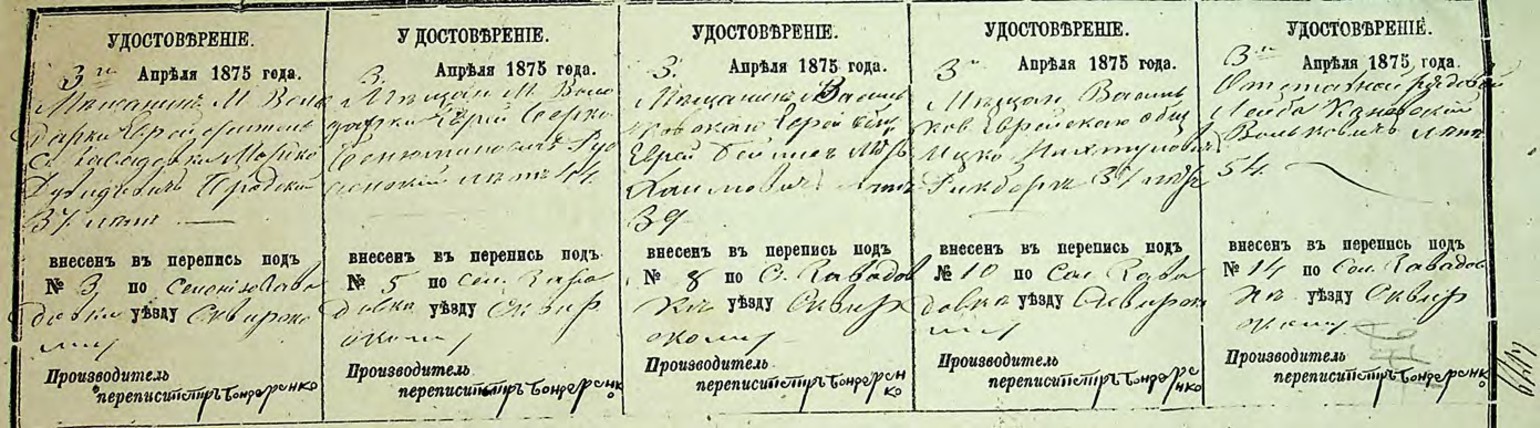 УДОСТОВѢРЕНІЕ.
3го Апрѣля 1875 года.
Мѣщанинъ М. Воло
дарки Еврей житель
С. Завадовки Мошко
Дувидовичъ Бродский
37 лѣтъ
внесенъ въ перепись подъ
№ 3 по Селенію Зава
довки уѣзду Сквирско
му
Производитель
переписи Петръ Бондаренко
УДОСТОВѢРЕНІЕ.
3. Апрѣля 1875 года.
Мѣщан М. Воло
дарки Еврей Берко
лѣтъ 44.
внесенъ въ перепись подъ
№ 5 по Сел. Зава
довка уѣзду Сквир
скому
Производитель
переписи Петръ Бондаренко
УДОСТОВѢРЕНІЕ.
3. Апрѣля 1875 года.
Мѣщанинъ Василь
ковскаго Еврей общ
Еврей
Хаимовичъ лѣтъ
39
внесенъ въ перепись подъ
№ 8 по С. Завадов
кѣ уѣзду Сквир
скому
Производитель
переписи Петръ Бондарен
ко
УДОСТОВѢРЕНІЕ.
3го Апрѣля 1875 года.
Мѣщан Василь
ков Еврейскаго общ
Ицко
37 лѣтъ
внесенъ въ перепись подъ
№ 10 по Сел. Зава
довка уѣзду Сквирско
му
Производитель
переписи Петръ Бондаре
нко
УДОСТОВѢРЕНІЕ.
3го Апрѣля 1875 года.
Отставной рядовой
Лейба Каневский
Вольковичъ лѣтъ
54.
внесенъ въ перепись подъ
№ 14 по Сел. Завадов
кѣ уѣзду Сквир
скому
Производитель
переписи Петръ Бондаренко